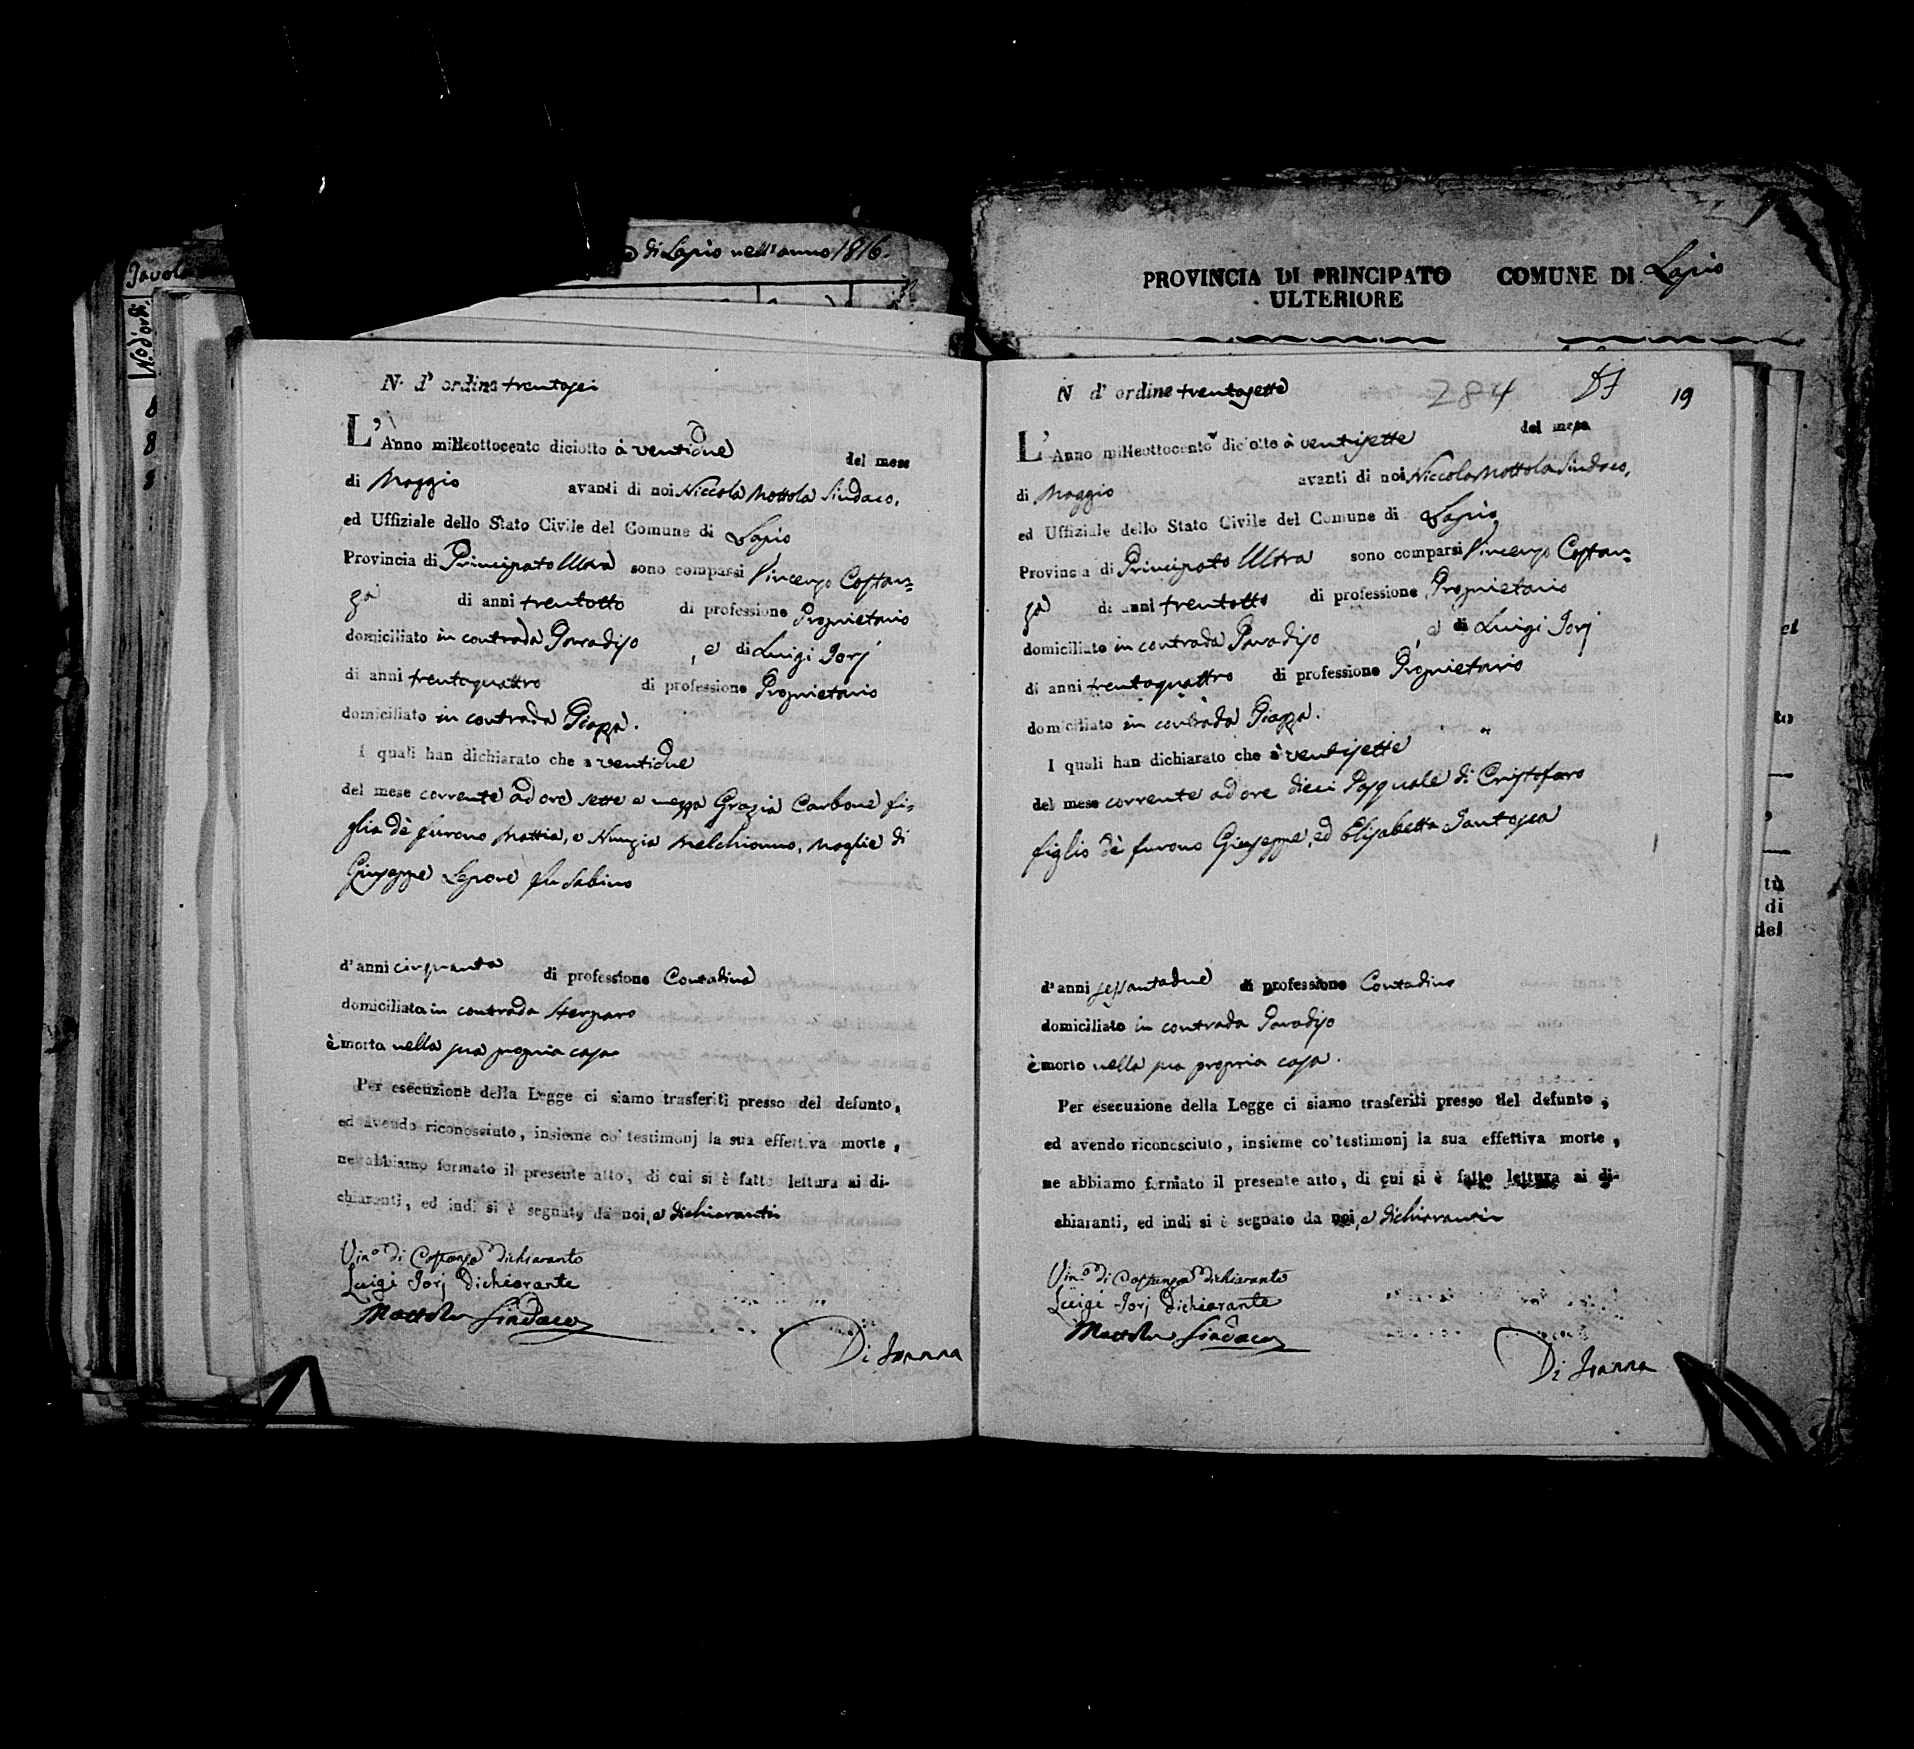 di Lapio nell'anno 1816.
Tavola
N.o d'ord.
8
8
8
PROVINCIA DI PRINCIPATO ULTERIORE
COMUNE DI Lapio
N. d' ordine trentasei
L'Anno milleottocento diciotto à ventidue del mese
di Maggio avanti di noi Niccola Mottola Sindaco,
ed Uffiziale dello Stato Civile del Comune di Lapio
Provincia di Principato Ultra sono comparsi Vincenzo Costan=
za di anni trentotto di professione Proprietario
domiciliato in contrada Paradiso, e di Luigi Iorj
di anni trentaquattro di professione Proprietario
domiciliato in contrada Piazza.
I quali han dichiarato che à ventidue
del mese corrente ad ore sette e mezza Grazia Carbone fi=
glia dè furono Mattia, e Nunzia Melchionno, moglie di
Giuseppe Lepore fu Sabino
d'anni cinquanta di professione Contadina
domiciliata in contrada Sterparo
è morta nella sua propria casa
Per esecuzione della Legge ci siamo trasferiti presso del defunto,
ed avendo riconosciuto, insieme co' testimonj la sua effettiva morte,
ne abbiamo formato il presente atto, di cui si è fatto lettura ai di-
chiaranti, ed indi si è segnato da noi, e dichiaranti
Vin.o di Costanza dichiarante
Luigi Iorj dichiarante
Mottola Sindaco
Di Ioanna
N d' ordine trentasette
284
19
L'Anno milleottocento diciotto à ventisette del mese
di Maggio avanti di noi Niccola Mottola Sindaco,
ed Uffiziale dello Stato Civile del Comune di Lapio
Provincia di Principato Ultra sono comparsi Vincenzo Costan=
za di anni trentotto di professione Proprietario
domiciliato in contrada Paradiso, e di Luigi Iorj
di anni trentaquattro di professione Proprietario
domiciliato in contrada Piazza.
I quali han dichiarato che à ventisette
del mese corrente ad ore dieci Pasquale di Cristofaro
figlio dè furono Giuseppe, ed Elisabetta Santosa
d'anni sessantadue di professione Contadino
domiciliato in contrada Paradiso
è morto nella sua propria casa.
Per esecuzione della Legge ci siamo trasferiti presso del defunto,
ed avendo riconosciuto, insieme co' testimonj la sua effettiva morte,
ne abbiamo formato il presente atto, di cui si è fatto lettura ai di-
chiaranti, ed indi si è segnato da noi, e dichiaranti
Vin.o di Costanza dichiarante
Luigi Iorj dichiarante
Mottola Sindaco
Di Ioanna
to
tù
di
del